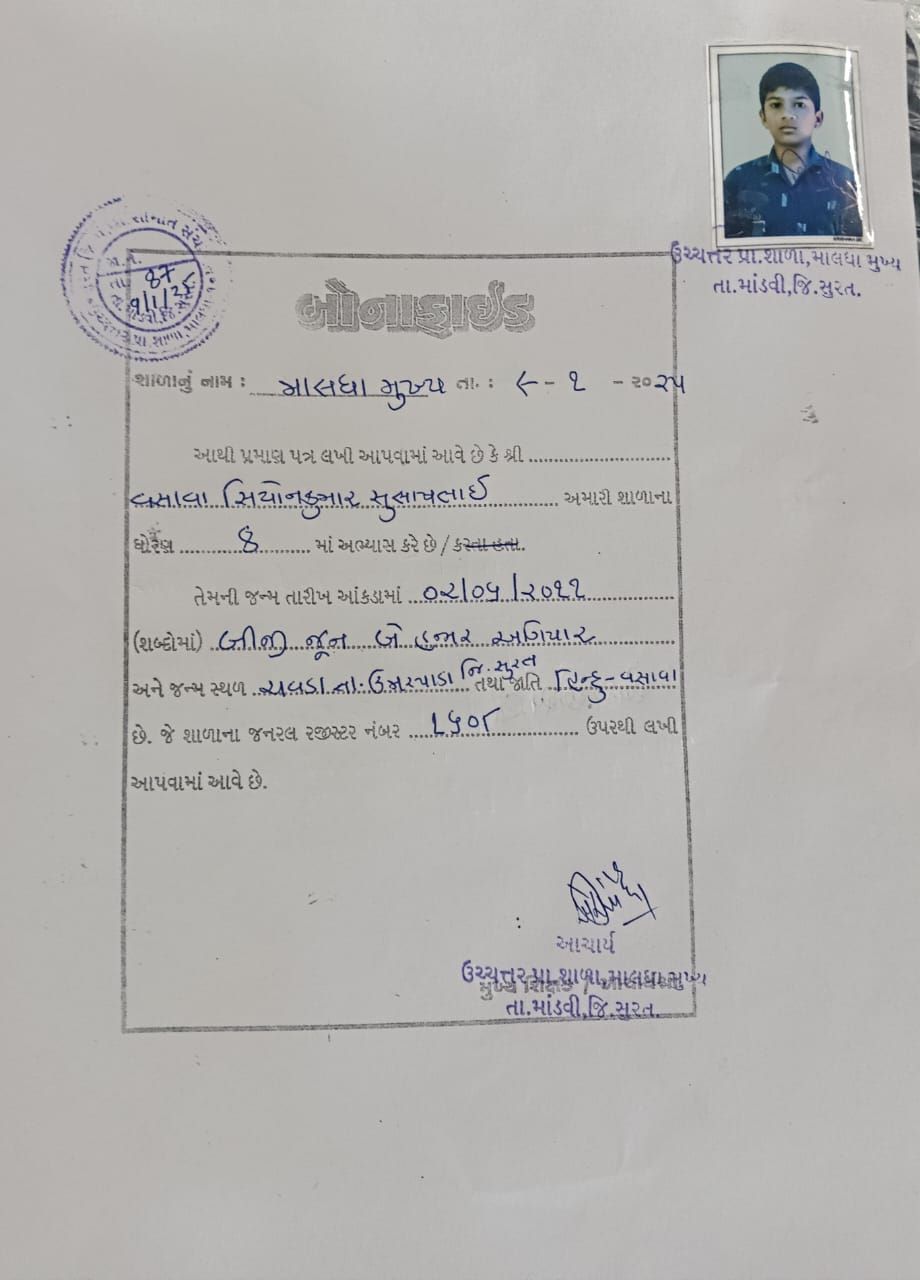 ઉચ્ચત્તર પ્રા.શાળા,માલધા મુખ્ય
તા.માંડવી,જિ.સુરત.
87
9/1/25
બોનાફાઈડ
શાળાનું નામ : માલધા મુખ્ય તા. : ૯ - ૧ - ૨૦૨૫
આથી પ્રમાણ પત્ર લખી આપવામાં આવે છે કે શ્રી
વસાવા સિયોનકુમાર અમારી શાળાના
ધોરણ 8 માં અભ્યાસ કરે છે / કરતા હતા.
તેમની જન્મ તારીખ આંકડામાં ૦૨/૦૫/૨૦૧૧
(શબ્દોમાં) બીજી જૂન બે હજાર અગિયાર
અને જન્મ સ્થળ તા. ઉમરપાડા જિ. સુરત તથા જાતિ હિન્દુ-વસાવા
છે. જે શાળાના જનરલ રજીસ્ટર નંબર ૧૫૦૮ ઉપરથી લખી
આપવામાં આવે છે.
આચાર્ય
ઉચ્ચત્તર પ્રા.શાળા,માલધા મુખ્ય
મુખ્ય શિક્ષક /
તા.માંડવી,જિ.સુરત.